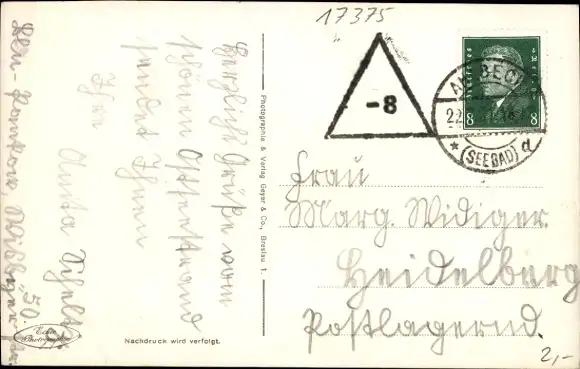 17375
Herzlich Grüße vom
schönen Ostseestrand
sendet Ihnen
Ihre
Anita
50.
Photographie & Verlag Geyer & Co., Breslau 1.
Nachdruck wird verfolgt.
Echte Photographie
-8
Deutsches Reich
8 8
AHLBECK
22.
* (SEEBAD) d
Frau
Marg. Widiger.
Heidelberg
Postlagernd.
2,-